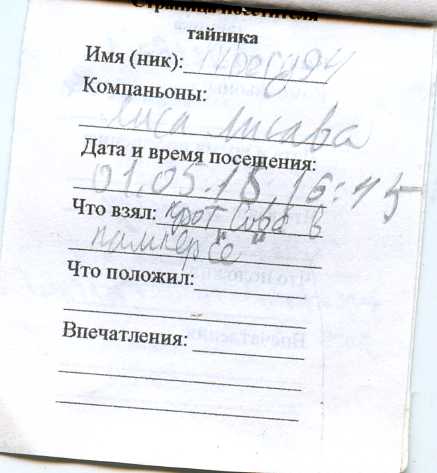 Страница посетителя
тайника
Имя (ник):
Компаньоны:
лиса Алиса
Дата и время посещения:
01.05.18 16:45
Что взял: крот "Сова в
памперсе"
Что положил:
Впечатления: